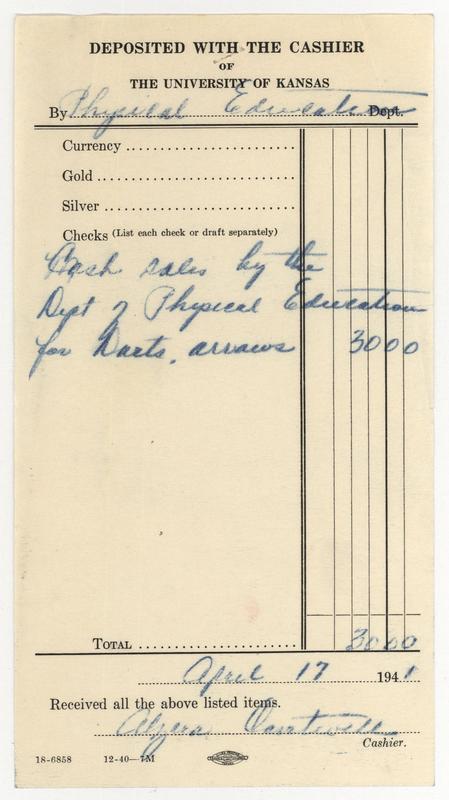 DEPOSITED WITH THE CASHIER
OF
THE UNIVERSITY OF KANSAS
By Physical Education Dept.
Currency
Gold
Silver
Checks (List each check or draft separately)
Cash sales by the
Dept of Physical Education
for Darts, arrows 30 00
TOTAL 30 00
April 17 1941
Received all the above listed items.
Cashier.
18-6858 12-40—7M